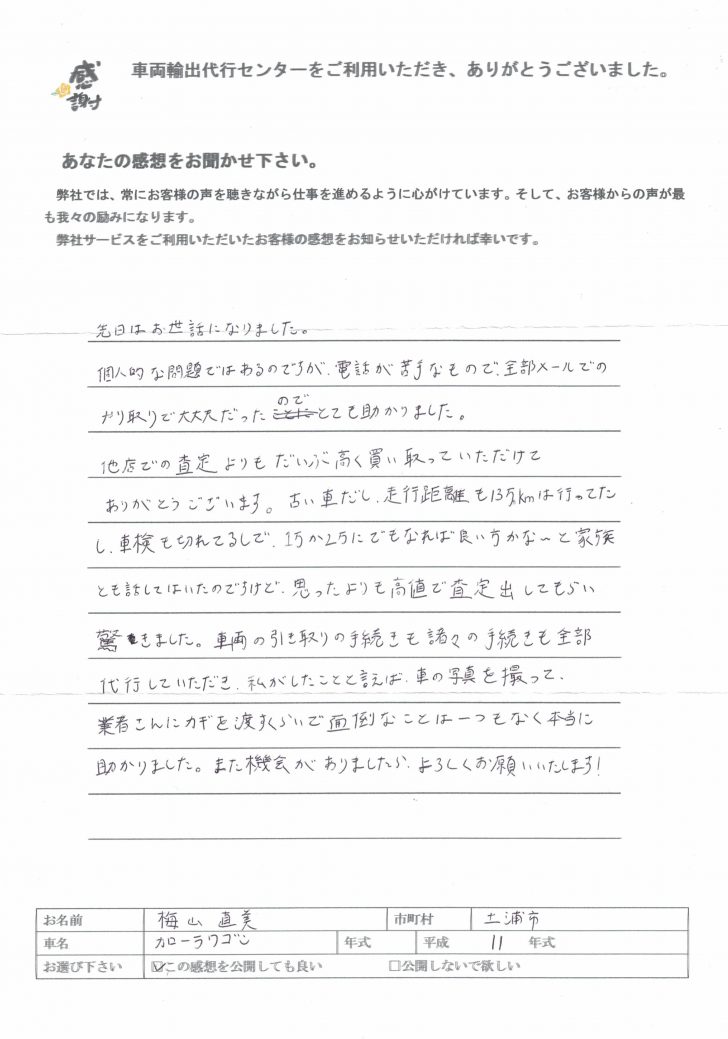 感謝
車両輸出代行センターをご利用いただき、ありがとうございました。
あなたの感想をお聞かせ下さい。
弊社では、常にお客様の声を聴きながら仕事を進めるように心がけています。そして、お客様からの声が最
も我々の励みになります。
弊社サービスをご利用いただいたお客様の感想をお知らせいただければ幸いです。
先日はお世話になりました。
個人的な問題ではあるのですが、電話が苦手なもので、全部メールでの
やり取りで大丈夫だったのでとても助かりました。
他店での査定よりもだいぶ高く買い取っていただけて
ありがとうございます。古い車だし、走行距離も13万kmは行ってた
し、車検も切れてるしで、1万か2万にでもなれば良い方かな〜と家族
とも話してはいたのですけど、思ったよりも高値で査定出してもらい
驚きました。車両の引き取りの手続きも諸々の手続きも全部
代行していただき、私がしたことと言えば、車の写真を撮って、
業者さんにカギを渡すくらいで面倒なことは一つもなく本当に
助かりました。また機会がありましたら、よろしくお願いいたします!
お名前 梅山 直美 市町村 土浦市
車名 カローラワゴン 年式 平成 11 年式
お選び下さい ☑この感想を公開しても良い □公開しないで欲しい